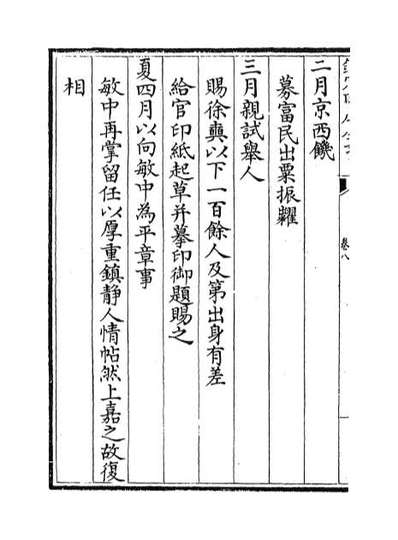 二月京西饑
募富民出粟振糶
三月親試舉人
賜徐奭以下一百餘人及第出身有差
給官印紙起草并摹印御題賜之
夏四月以向敏中為平章事
敏中再掌留任以厚重鎮靜人情帖然上嘉之故復
相
卷八